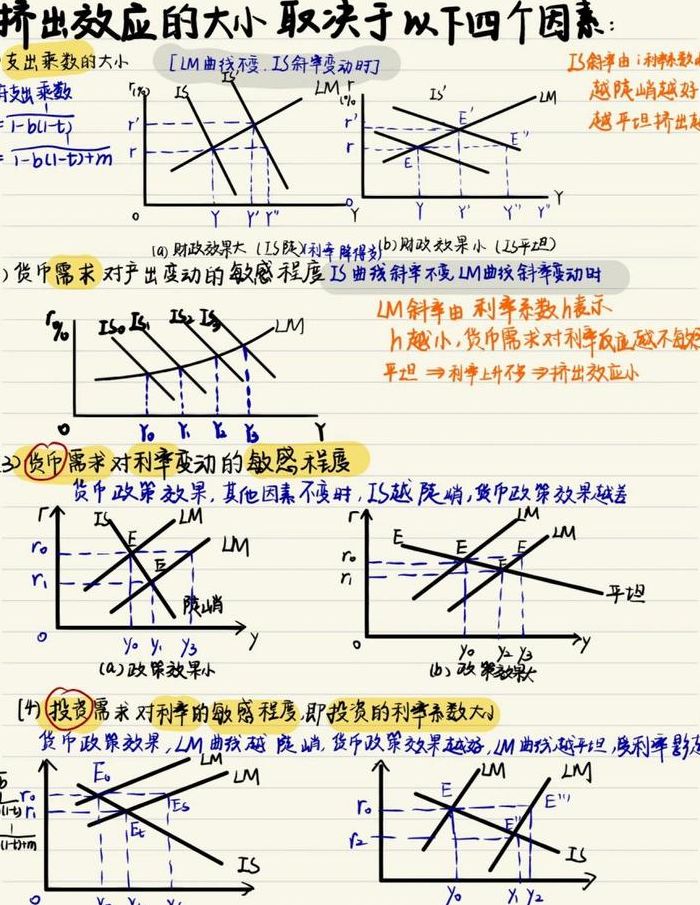 挤出效应的大小取决于以下四个因素:
支出乘数的大小 [LM曲线不变,IS斜率变动时]
支出乘数
1-b(1-t)
= 1-b(1-t)+m
IS斜率由
越陡峭越好
越平坦挤出
r(%) IS IS' LM
r'
r
0 Y Y' Y'' Y
r (%) IS' LM
r' E' E''
r E
0 Y Y' Y'' Y''' Y
(a) 财政效果大 (IS陡)(利率降得多) (b) 财政效果小 (IS平坦)
)货币需求对产出变动的敏感程度 IS曲线斜率不变,LM曲线斜率变动时
LM斜率由 利率系数h表示
h越小,货币需求对利率反应越不敏感
平坦 ⇒ 利率上升不多 ⇒ 挤出效应小
r% IS₀ IS₁ IS₂ IS₃ LM
0 Y₀ Y₁ Y₂ Y₃ Y
3)货币需求对利率变动的敏感程度
货币政策效果,其他因素不变时,IS越陡峭,货币政策效果越差
r IS LM
r₀ E LM
r₁ E
陡峭
0 y₀ y₁ y₃ y
(a) 政策效果小
r E LM
r₀ E E LM
r₁ E
平坦
0 y₀ y₂ y₃ y
(b) 政策效果大
(4) 投资需求对利率的敏感程度,即投资的利率系数大小
货币政策效果,LM曲线越陡峭,货币政策效果越好,LM曲线越平坦,
E₀ LM
r₀ LM
r₁ E₅
E₁
IS
0
(1-t)+m
LM LM
r₀ E E'''
r₂ E''
IS
y₀ y₁ y₂